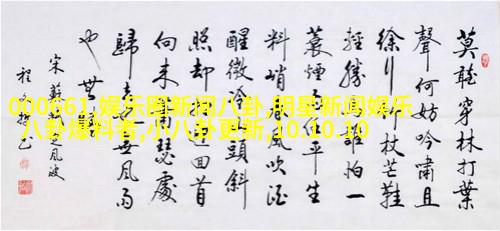 莫聽穿林打葉
聲何妨吟嘯且
徐行竹杖芒鞋
輕勝馬誰怕一
蓑煙雨任平生
料峭春風吹酒
醒微冷山頭斜
照却相迎回首
向來蕭瑟處
歸去也無風雨
也無晴
宋蘇軾定風波
000661,娱乐圈新闻八卦,明星新闻娱乐
八卦爆料者,小八卦更新,10.10.10